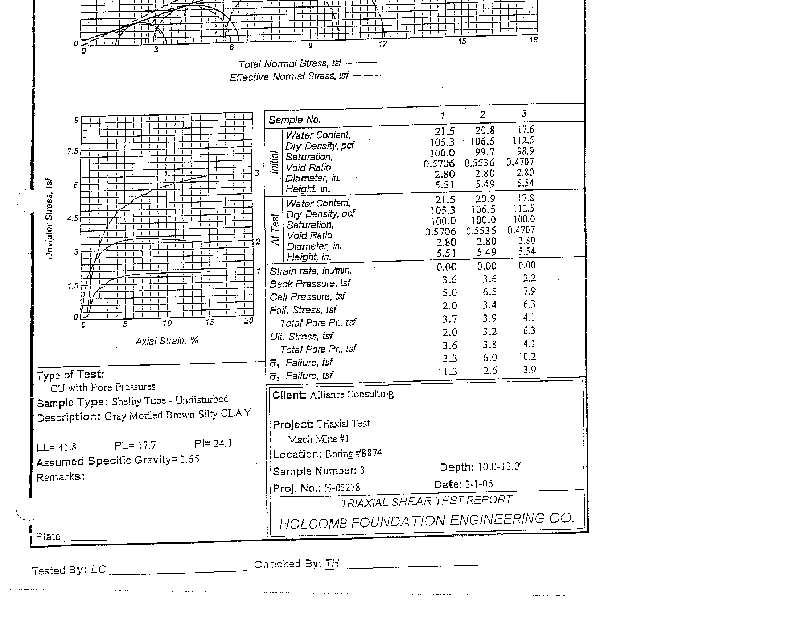 0 3 6 12 15 18
Total Normal Stress, tsf
Effective Normal Stress, tsf
Deviator Stress, tsf
9
7.5
6
4.5
3
1.5
0
0 5 10 15 20
3
2
1
Axial Strain, %
Sample No. 1 2 3
Initial
Water Content, 21.5 20.8 17.6
Dry Density, pcf 105.3 106.5 112.5
Saturation, 100.0 99.7 98.9
Void Ratio 0.5706 0.5536 0.4707
Diameter, in. 2.80 2.80 2.80
Height, in. 5.51 5.49 5.54
At Test
Water Content, 21.5 20.9 17.8
Dry Density, pcf 105.3 106.5 112.5
Saturation, 100.0 100.0 100.0
Void Ratio 0.5706 0.5535 0.4707
Diameter, in. 2.80 2.80 2.80
Height, in. 5.51 5.49 5.54
Strain rate, in./min. 0.00 0.00 0.00
Back Pressure, tsf 3.6 3.6
Cell Pressure, tsf 5.0 6.5 7.9
Fail. Stress, tsf 2.0 3.4 6.3
Total Pore Pr., tsf 3.7 3.9 4.1
Ult. Stress, tsf 2.0 3.2 6.3
Total Pore Pr., tsf 3.6 3.8 4.1
σ̄₁ Failure, tsf 3.3 6.0 10.2
Failure, tsf 2.6 3.9
Type of Test:
CU with Pore Pressures
Sample Type: Shelby Tube - Undisturbed
Description: Gray Mottled Brown Silty CLAY
LL= 41.8 PL= 17.7 PI= 24.1
Assumed Specific Gravity= 2.65
Remarks:
Plate
Client: Alliance Consulting
Project: Triaxial Test
Mach Mine #1
Location: Boring #B874
Sample Number: 3 Depth: 10.0-12.0'
Proj. No.: Date:
TRIAXIAL SHEAR TEST REPORT
HOLCOMB FOUNDATION ENGINEERING CO.
Tested By: LC Checked By: TH